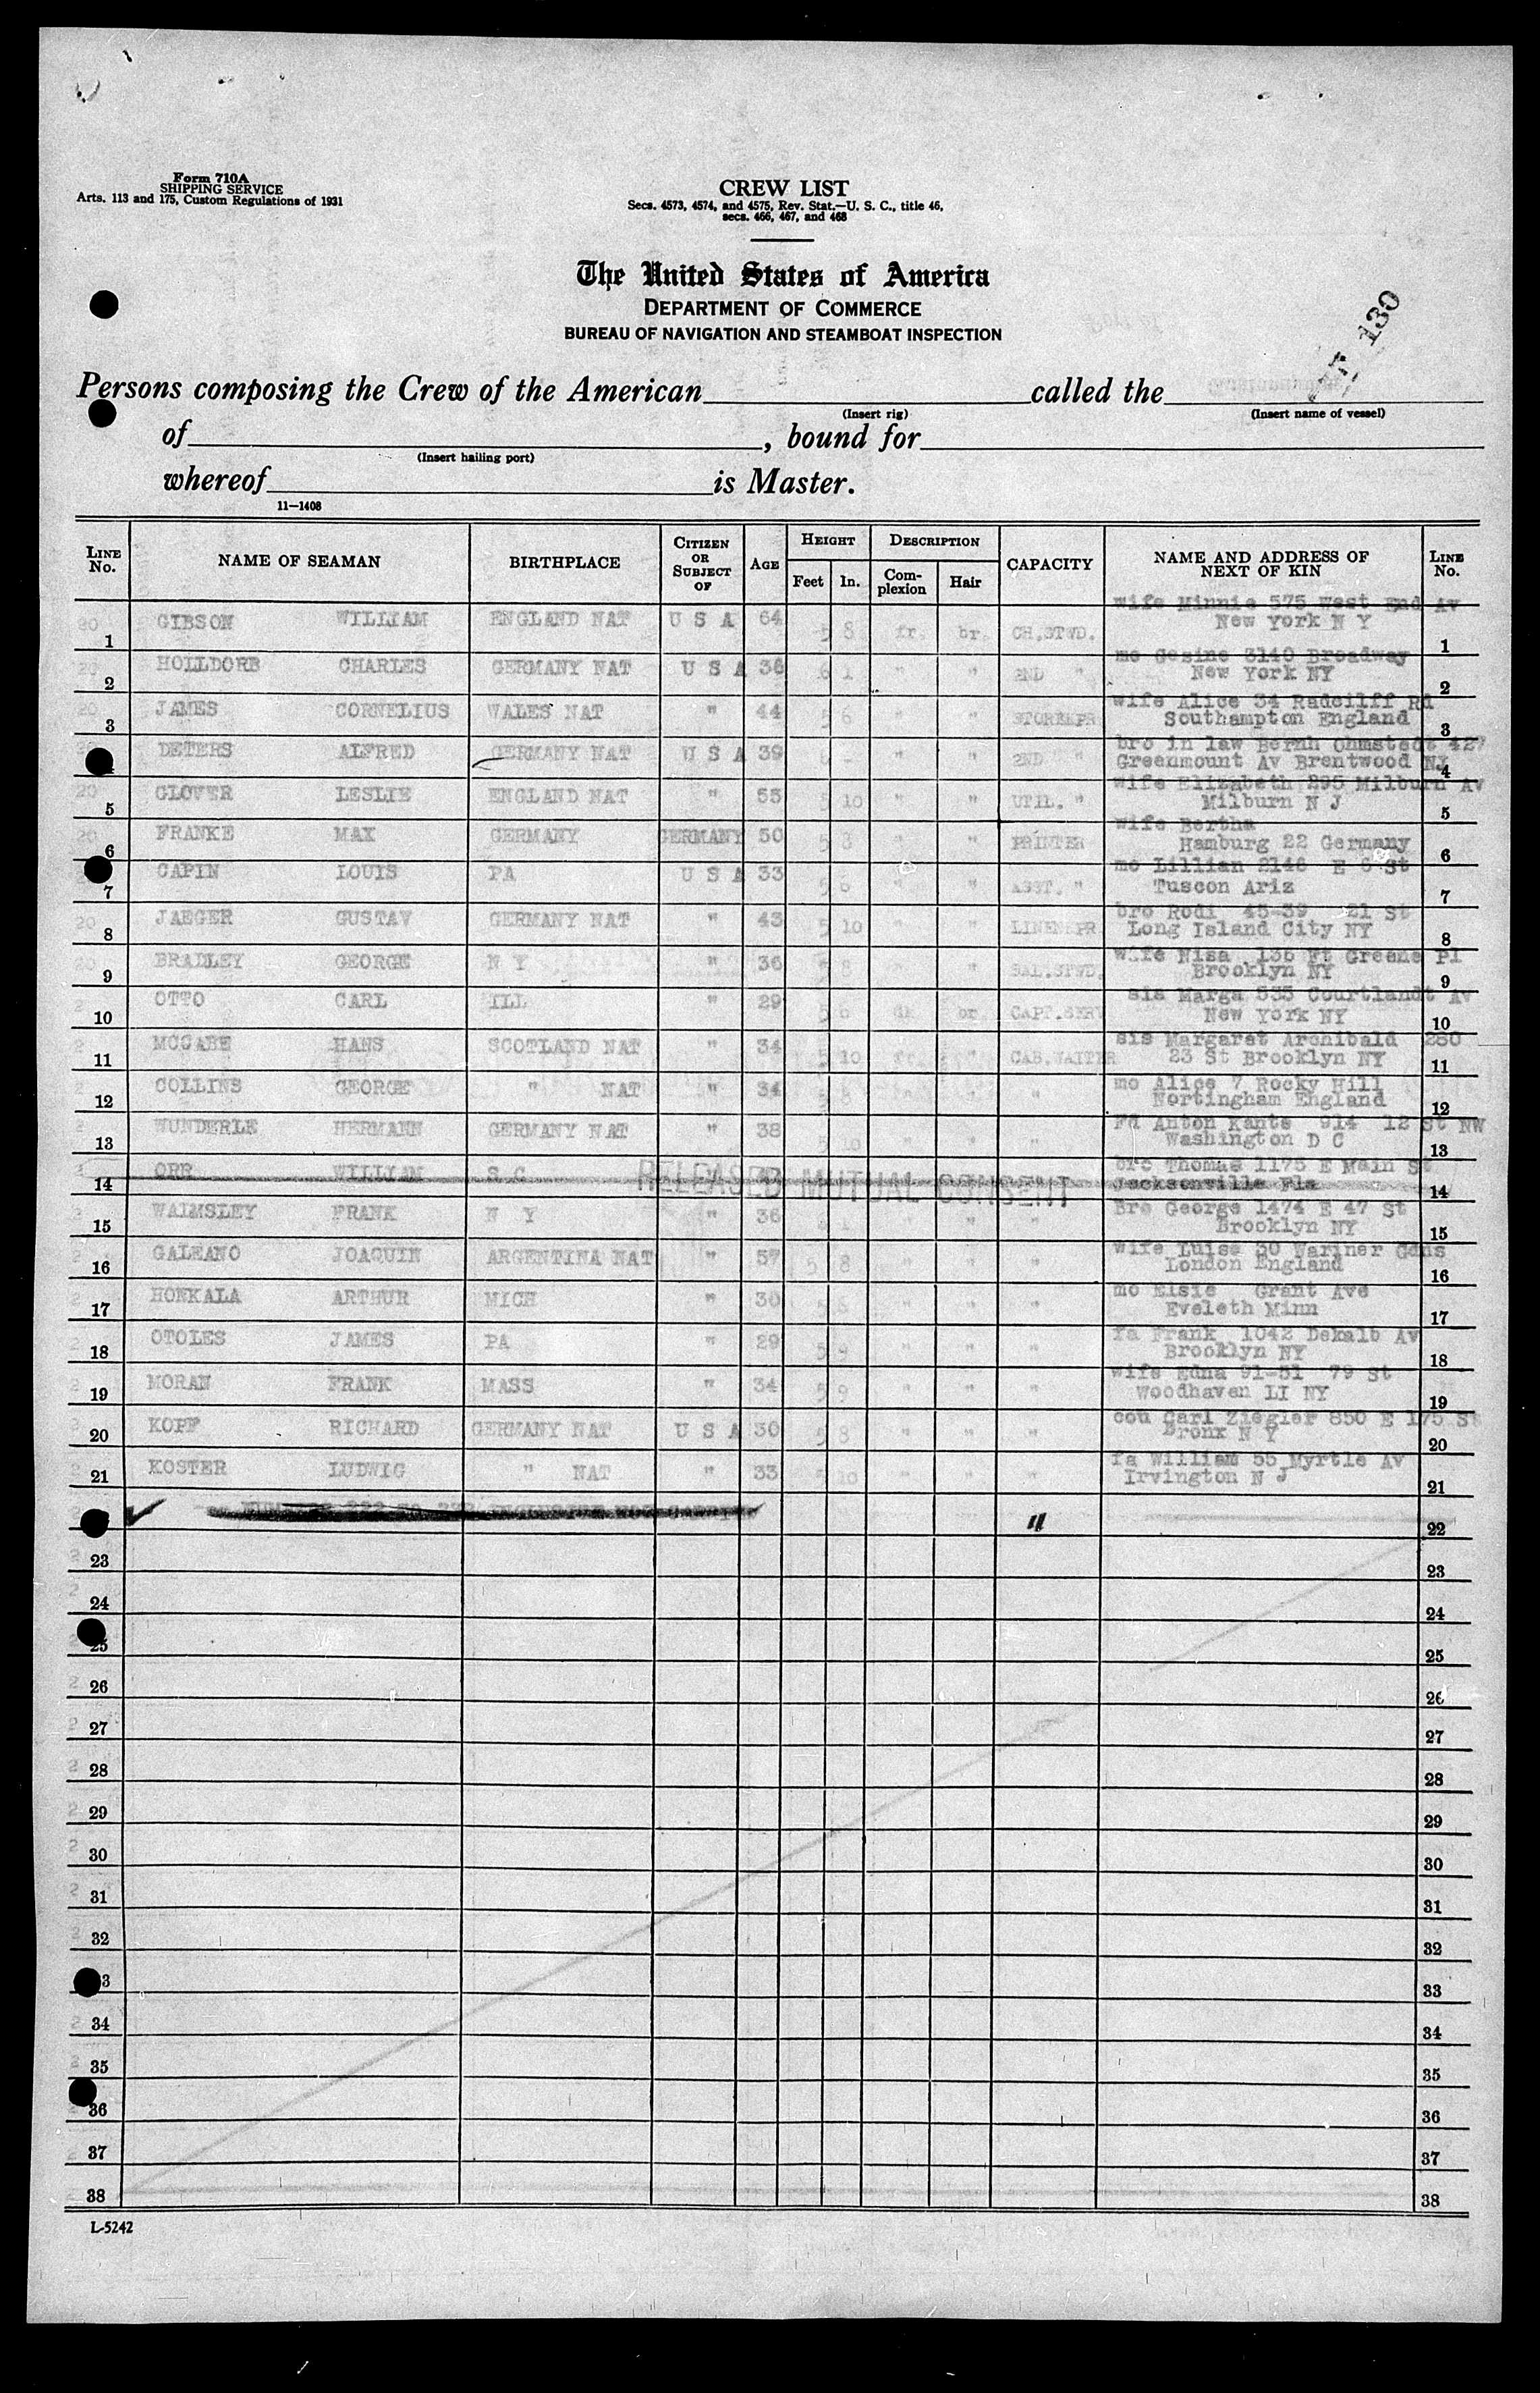 Form 710A
SHIPPING SERVICE
Arts. 113 and 175, Custom Regulations of 1931
CREW LIST
Secs. 4573, 4574, and 4575, Rev. Stat.—U. S. C., title 46,
secs. 466, 467, and 468
The United States of America
DEPARTMENT OF COMMERCE
BUREAU OF NAVIGATION AND STEAMBOAT INSPECTION
130
Persons composing the Crew of the American called the
(Insert rig) (Insert name of vessel)
of , bound for
(Insert hailing port)
whereof is Master.
11—1408
LINE No. NAME OF SEAMAN BIRTHPLACE CITIZEN OR SUBJECT OF AGE HEIGHT Feet In. DESCRIPTION Complexion Hair CAPACITY NAME AND ADDRESS OF NEXT OF KIN LINE No.
wife Minnie 575 West End Av
1 GIBSON WILLIAM ENGLAND NAT U S A 64 5 8 fr. br. CH.STWD. New York N Y 1
mo Gesine 3140 Broadway
2 HOLLDORB CHARLES GERMANY NAT U S A 36 6 1 " " 2ND " New York NY 2
wife Alice 34 Radcilff Rd
3 JAMES CORNELIUS WALES NAT " 44 5 6 " " STOREKPR Southampton England 3
bro in law Bernh Ohmstedt 427
DETERS ALFRED GERMANY NAT U S A 39 6 - " " 2ND " Greenmount Av Brentwood NJ 4
wife Elizabeth 295 Milburn Av
5 GLOVER LESLIE ENGLAND NAT " 55 5 10 " " UTIL. " Milburn N J 5
wife Bertha
6 FRANKE MAX GERMANY GERMANY 50 5 8 " " PRINTER Hamburg 22 Germany 6
mo Lillian 2146 E 6 St
7 CAPIN LOUIS PA U S A 33 5 6 " " ASST. " Tuscon Ariz 7
bro Rodi 45-39 21 St
8 JAEGER GUSTAV GERMANY NAT " 43 5 10 " " LINENKPR Long Island City NY 8
wife Nisa 136 Ft Greene Pl
9 BRADLEY GEORGE N Y " 36 5 8 " " SAL.STWD. Brooklyn NY 9
sis Marga 535 Courtlandt Av
10 OTTO CARL ILL " 29 5 6 dk br CAPT.SERV New York NY 10
sis Margaret Archibald 280
11 MCCABE HANS SCOTLAND NAT " 34 5 10 fr " CAB.WAITER 23 St Brooklyn NY 11
mo Alice 7 Rocky Hill
12 COLLINS GEORGE " NAT " 34 5 8 " " " Nortingham England 12
Fd Anton Kants 914 12 St NW
13 WUNDERLE HERMANN GERMANY NAT " 38 5 10 " " " Washington D C 13
bro Thomas 1175 E Main St
14 ORR WILLIAM S C RELEASED MUTUAL CONSENT Jacksonville Fla 14
Bro George 1474 E 47 St
15 WALMSLEY FRANK N Y " 36 6 1 " " " Brooklyn NY 15
wife Luise 30 Wariner Gdns
16 GALEANO JOAQUIN ARGENTINA NAT " 57 5 8 " " " London England 16
mo Elsie Grant Ave
17 HONKALA ARTHUR MICH " 30 5 6 " " " Eveleth Minn 17
fa Frank 1042 Dekalb Av
18 OTOLES JAMES PA " 29 5 9 " " " Brooklyn NY 18
wife Edna 91-51 79 St
19 MORAN FRANK MASS " 34 5 9 " " " Woodhaven LI NY 19
cou Carl Ziegler 850 E 175 St
20 KOPF RICHARD GERMANY NAT U S A 30 5 8 " " " Bronx N Y 20
fa William 55 Myrtle Av
21 KOSTER LUDWIG " NAT " 33 5 10 " " " Irvington N J 21
" 22
23 23
24 24
25 25
26 26
27 27
28 28
29 29
30 30
31 31
32 32
3 33
34 34
35 35
36 36
37 37
38 38
L-5242